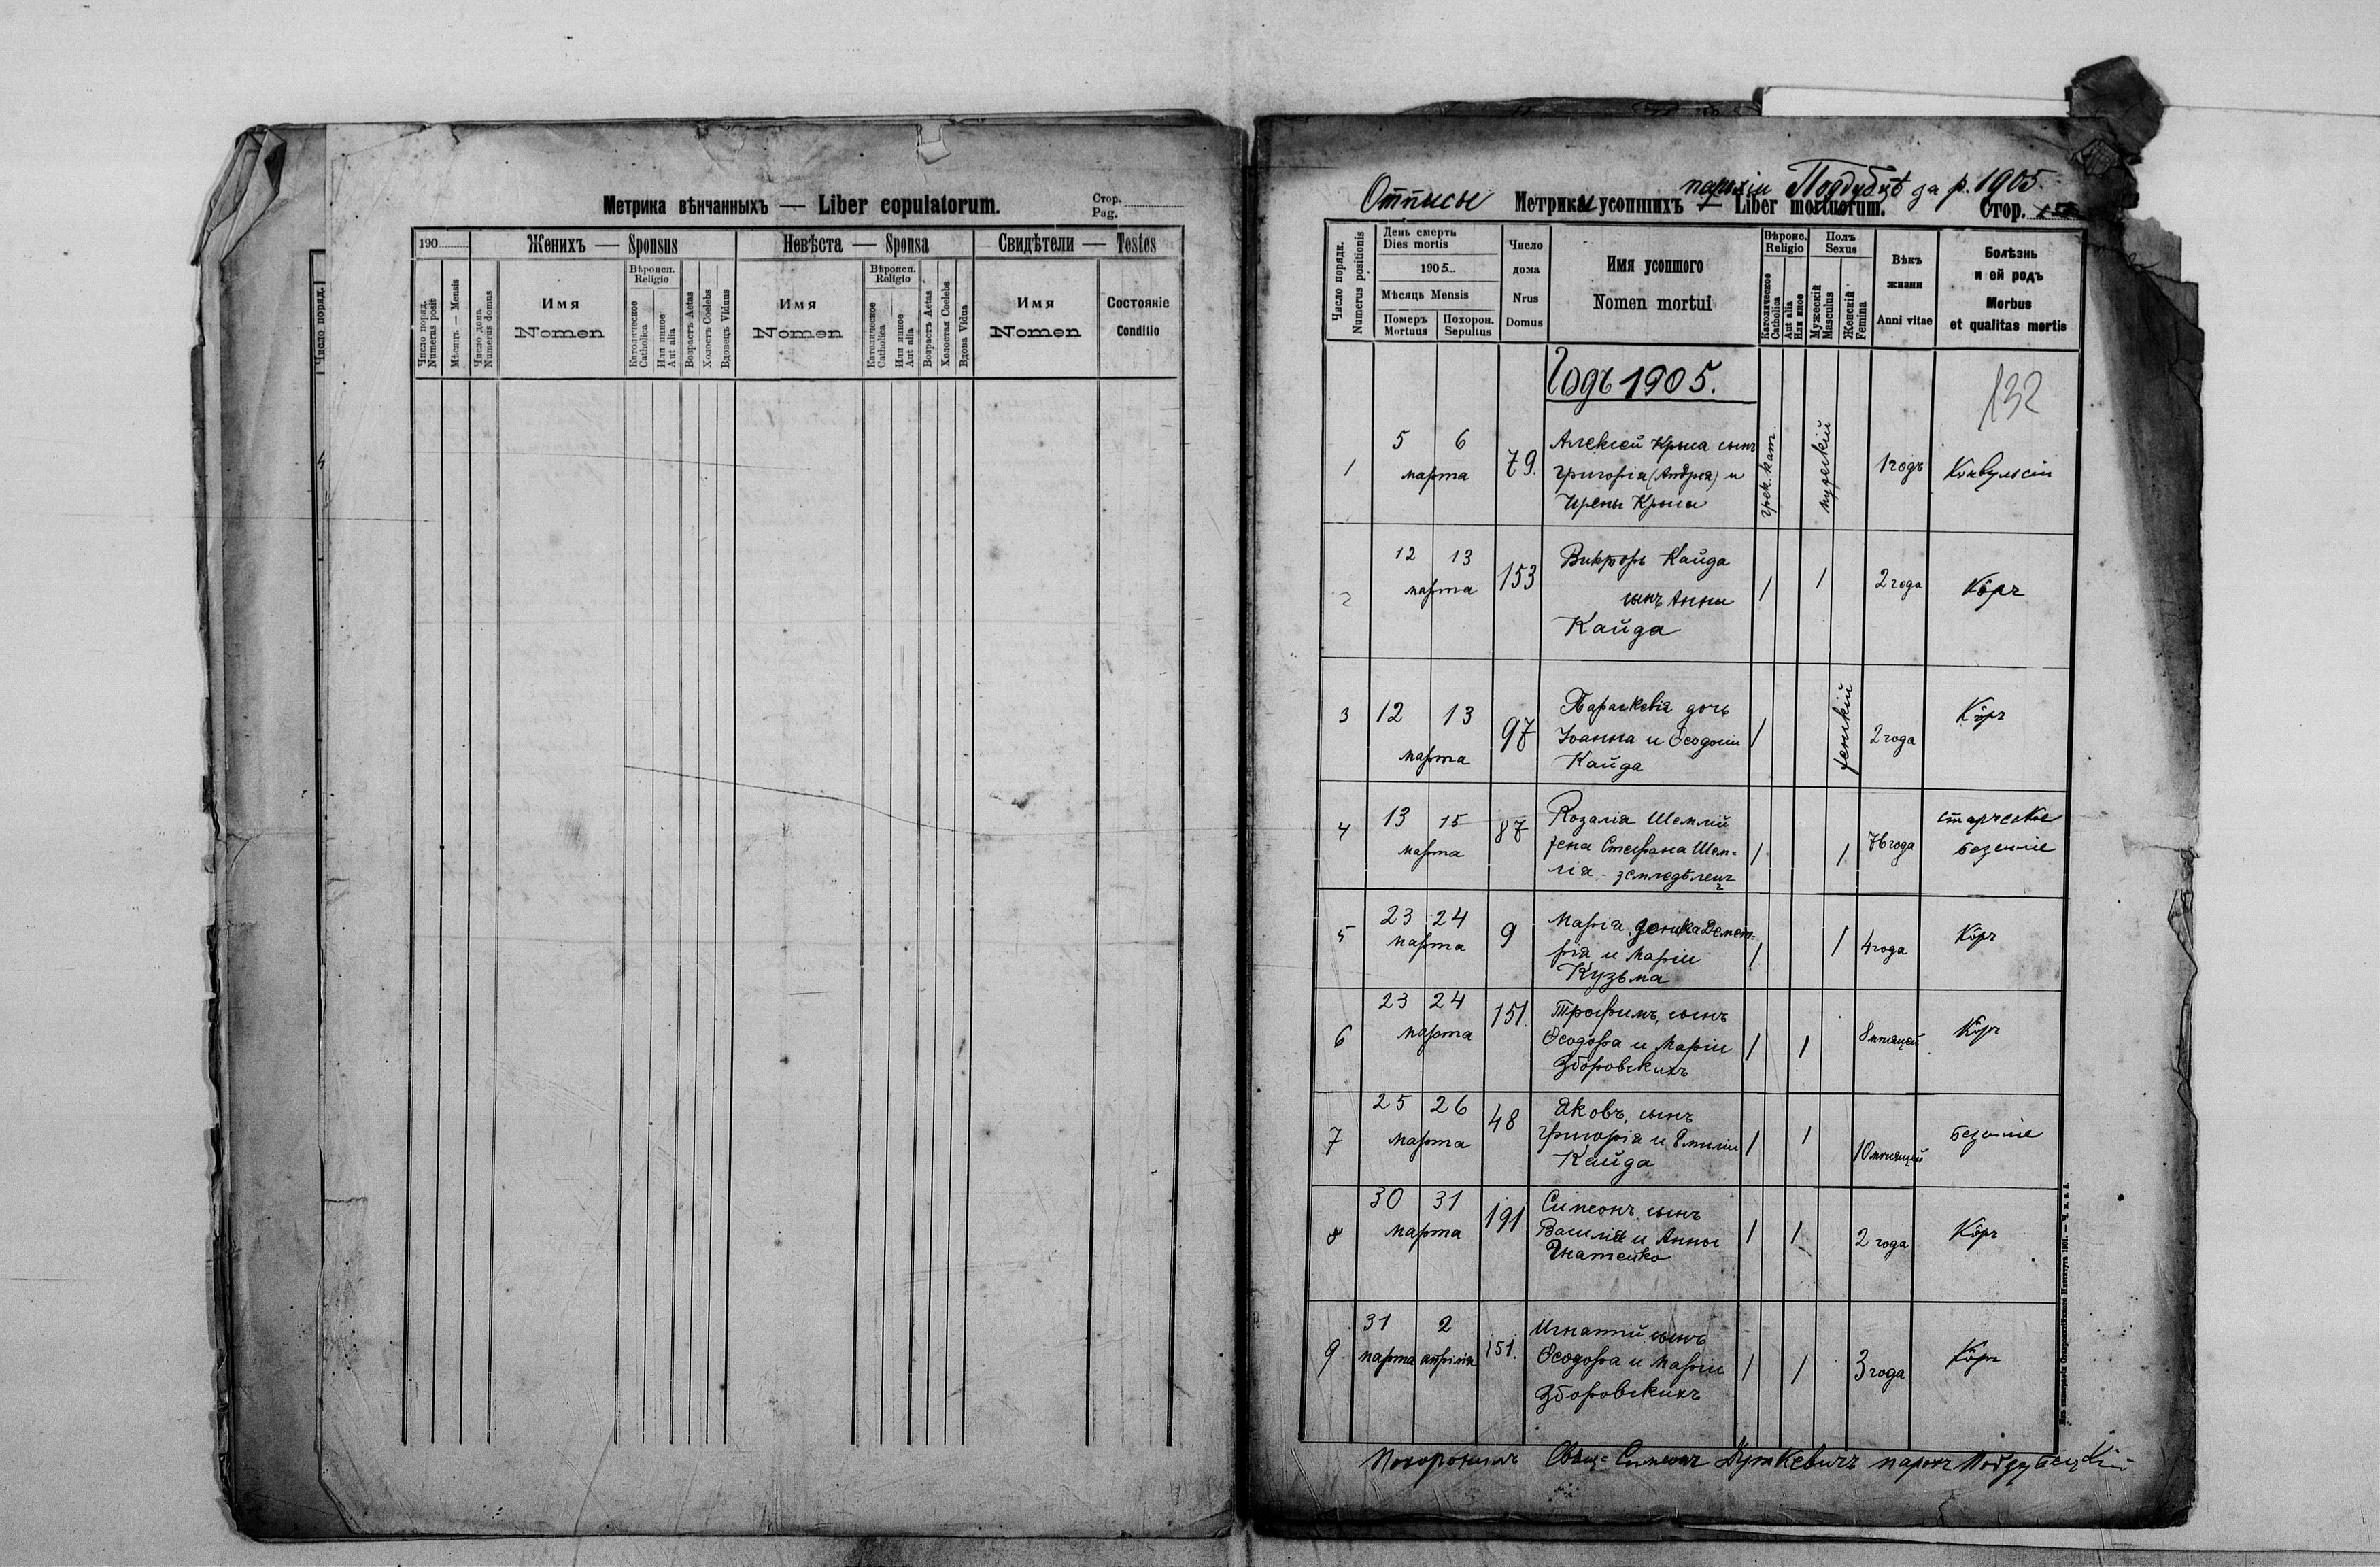 Метрика вѣнчанныхъ — Liber copulatorum.
Стор.
Pag.
190
Женихъ — Sponsus
Невѣста — Sponsa
Свидѣтели — Testes
Число поряд.
Numerus posit
Мѣсяць — Mensis
Число дома
Numerus domus
Имя
Nomen
Вѣроисп.
Religio
Католическое
Catholica
Или инное
Aut alia
Возрастъ Aetas
Холостъ Coelebs
Вдовецъ Viduus
Имя
Nomen
Вѣроисп.
Religio
Католическое
Catholica
Или инное
Aut alia
Возрастъ Aetas
Холостая Coelebs
Вдова Vidua
Имя
Nomen
Состоянiе
Conditio
Число поряд.
парохіи Подубцѣ за р. 1905.
Отписы Метрики усопшихъ — Liber mortuorum. Стор.
Число порядк.
Numerus positionis
День смерть
Dies mortis
1905
Мѣсяць Mensis
Померъ
Mortuus
Похорон.
Sepultus
Число
дома
Nrus
Domus
Имя усопшого
Nomen mortui
Вѣроис.
Religio
Католическое
Catholica
Aut alia
Или иное
Полъ
Sexus
Мужескій
Masculus
Женскій
Femina
Вѣкъ
жизни
Anni vitae
Болѣзнь
и ей родъ
Morbus
et qualitas mortis
Годъ 1905.
132
1 5 6 марта 79. Алексей Крыса сынъ
Григорія (Андрея) и
Ирены Крыса
грек. кат. мужескій 1 годъ Конвульсіи
2 12 13 марта 153 Викторъ Кайда
сынъ Анны
Кайда
1 1 2 года Кôръ
3 12 13 марта 97 Параскевія дочь
Іоанна и Ѳеодосіи
Кайда
1 женскій 2 года Кôръ
4 13 15 марта 87 Розалія Шемлій
жена Стефана Шем-
лія - земледѣлецъ
1 1 76 года старческое
безсиліе
5 23 24 марта 9 Марія, донька Демет-
рія и Маріи
Кузьма
1 1 4 года Кôръ
6 23 24 марта 151. Трофимъ, сынъ
Ѳеодора и Маріи
Зборовскихъ
1 1 8 мѣсяцей Кôръ
7 25 26 марта 48 Яковъ, сынъ
Григорія и Емиліи
Кайда
1 1 10 мѣсяцей безсиліе
8 30 31 марта 191 Симеонъ сынъ
Василія и Анны
Гнатейко
1 1 2 года Кôръ
9 31 марта 2 апрѣля 151. Игнатій сынъ
Ѳеодора и Маріи
Зборовскихъ
1 1 3 года Кôръ
Похоронилъ Свящ= Симеонъ Дуткевичъ парохъ Подубецкій